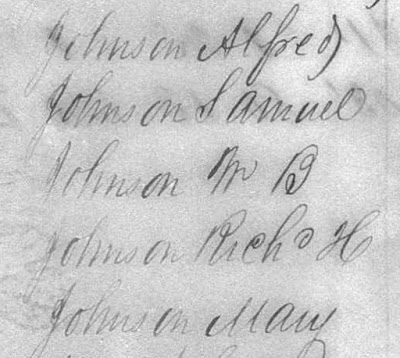 Johnson Alfred
Johnson Samuel
Johnson Wm B
Johnson Richd H
Johnson Mary